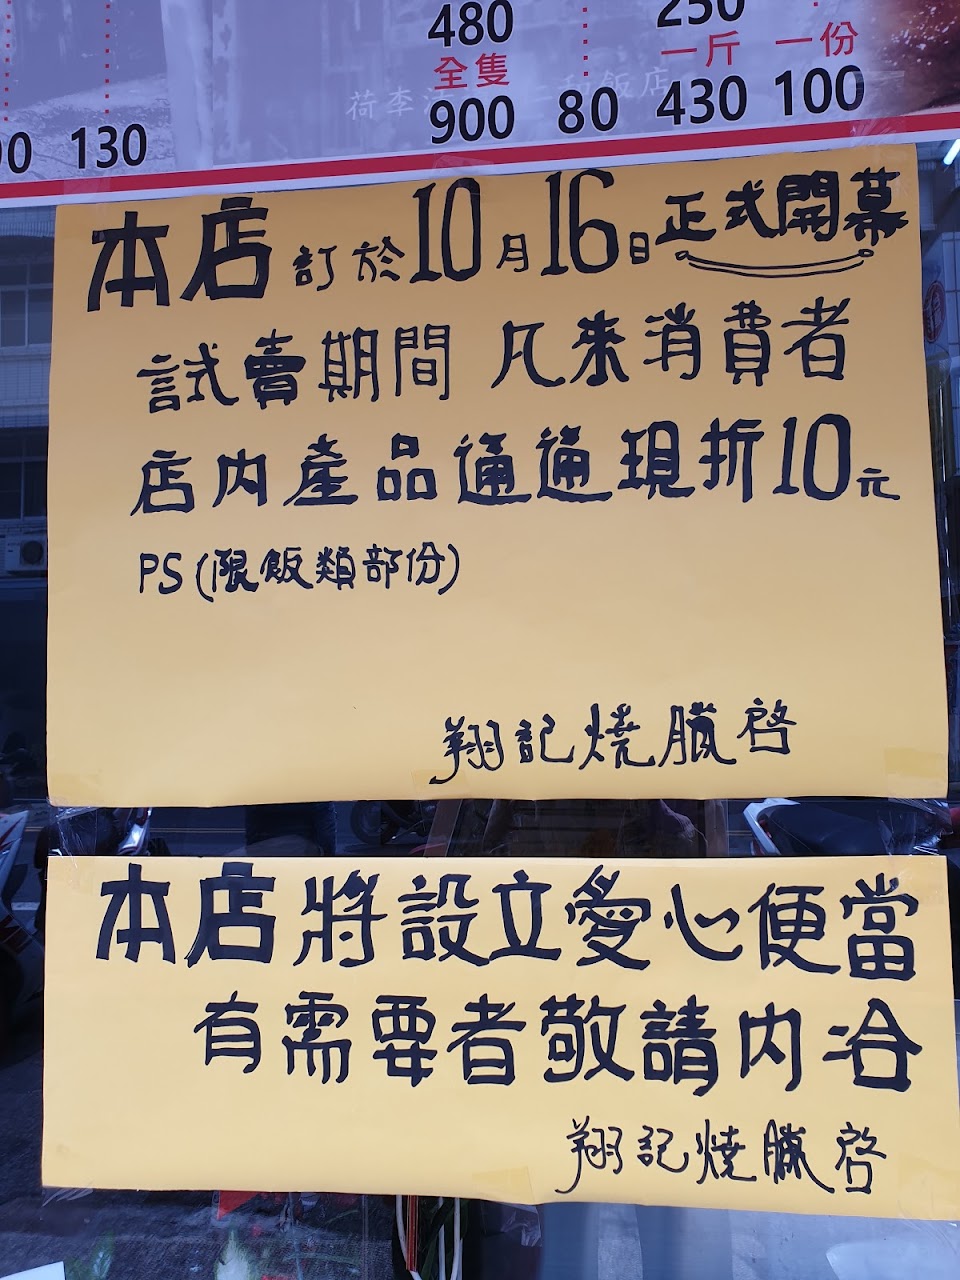 480
250
全隻
一斤
一份
90 130 900 80 430 100
本店訂於10月16日正式開幕
試賣期間 凡來消費者
店內產品通通現折10元
PS(限飯類部份)
翔記燒臘啓
本店將設立愛心便當
有需要者敬請內洽
翔記燒臘啓